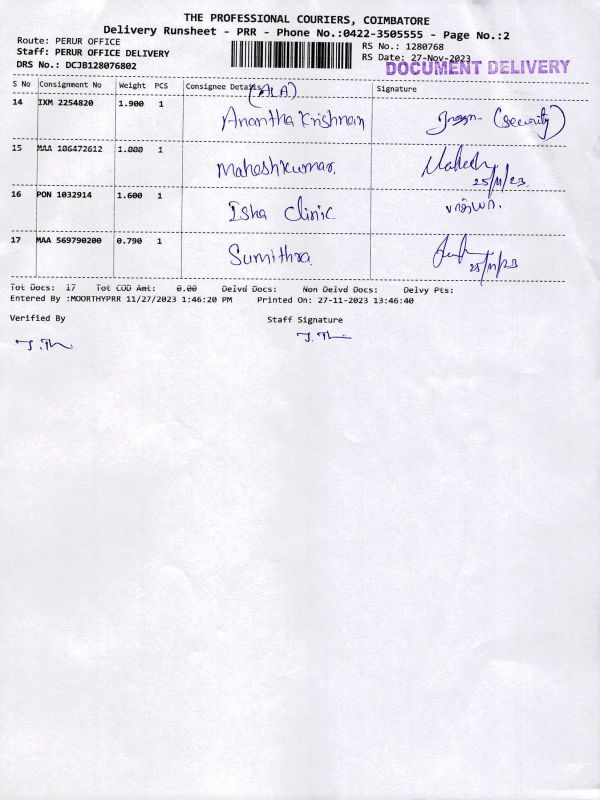 THE PROFESSIONAL COURIERS, COIMBATORE
Delivery Runsheet - PRR - Phone No.:0422-3505555 - Page No.:2
Route: PERUR OFFICE RS No.: 1280768
Staff: PERUR OFFICE DELIVERY RS Date: 27-Nov-2023
DRS No.: DCJB128076802 DOCUMENT DELIVERY
S No Consignment No Weight PCS Consignee Details Signature
(ALA)
14 IXM 2254820 1.900 1 Anantha Krishnan (Security)
15 MAA 106472612 1.000 1 Maheshkumar. Mahesh
25/11/23
16 PON 1032914 1.600 1 Isha clinic
17 MAA 569790200 0.790 1 Sumithra 25/11/23
Tot Docs: 17 Tot COD Amt: 0.00 Delvd Docs: Non Delvd Docs: Delvy Pts:
Entered By :MOORTHYPRR 11/27/2023 1:46:20 PM Printed On: 27-11-2023 13:46:40
Verified By Staff Signature